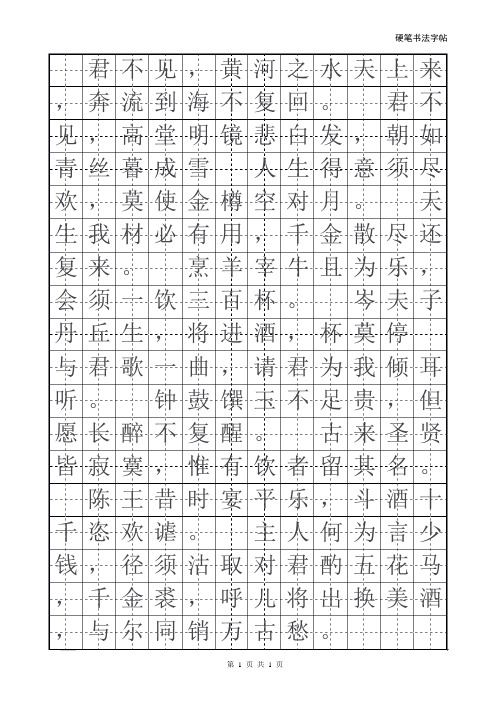 硬笔书法字帖
君不见，黄河之水天上来
，奔流到海不复回。 君不
见，高堂明镜悲白发，朝如
青丝暮成雪 人生得意须尽
欢，莫使金樽空对月。 天
生我材必有用，千金散尽还
复来。 烹羊宰牛且为乐，
会须一饮三百杯。 岑夫子
丹丘生，将进酒，杯莫停
与君歌一曲，请君为我倾耳
听。 钟鼓馔玉不足贵，但
愿长醉不复醒。 古来圣贤
皆寂寞，惟有饮者留其名。
陈王昔时宴平乐，斗酒十
千恣欢谑。 主人何为言少
钱，径须沽取对君酌五花马
，千金裘，呼儿将出换美酒
，与尔同销万古愁。
第 1 页 共 1 页